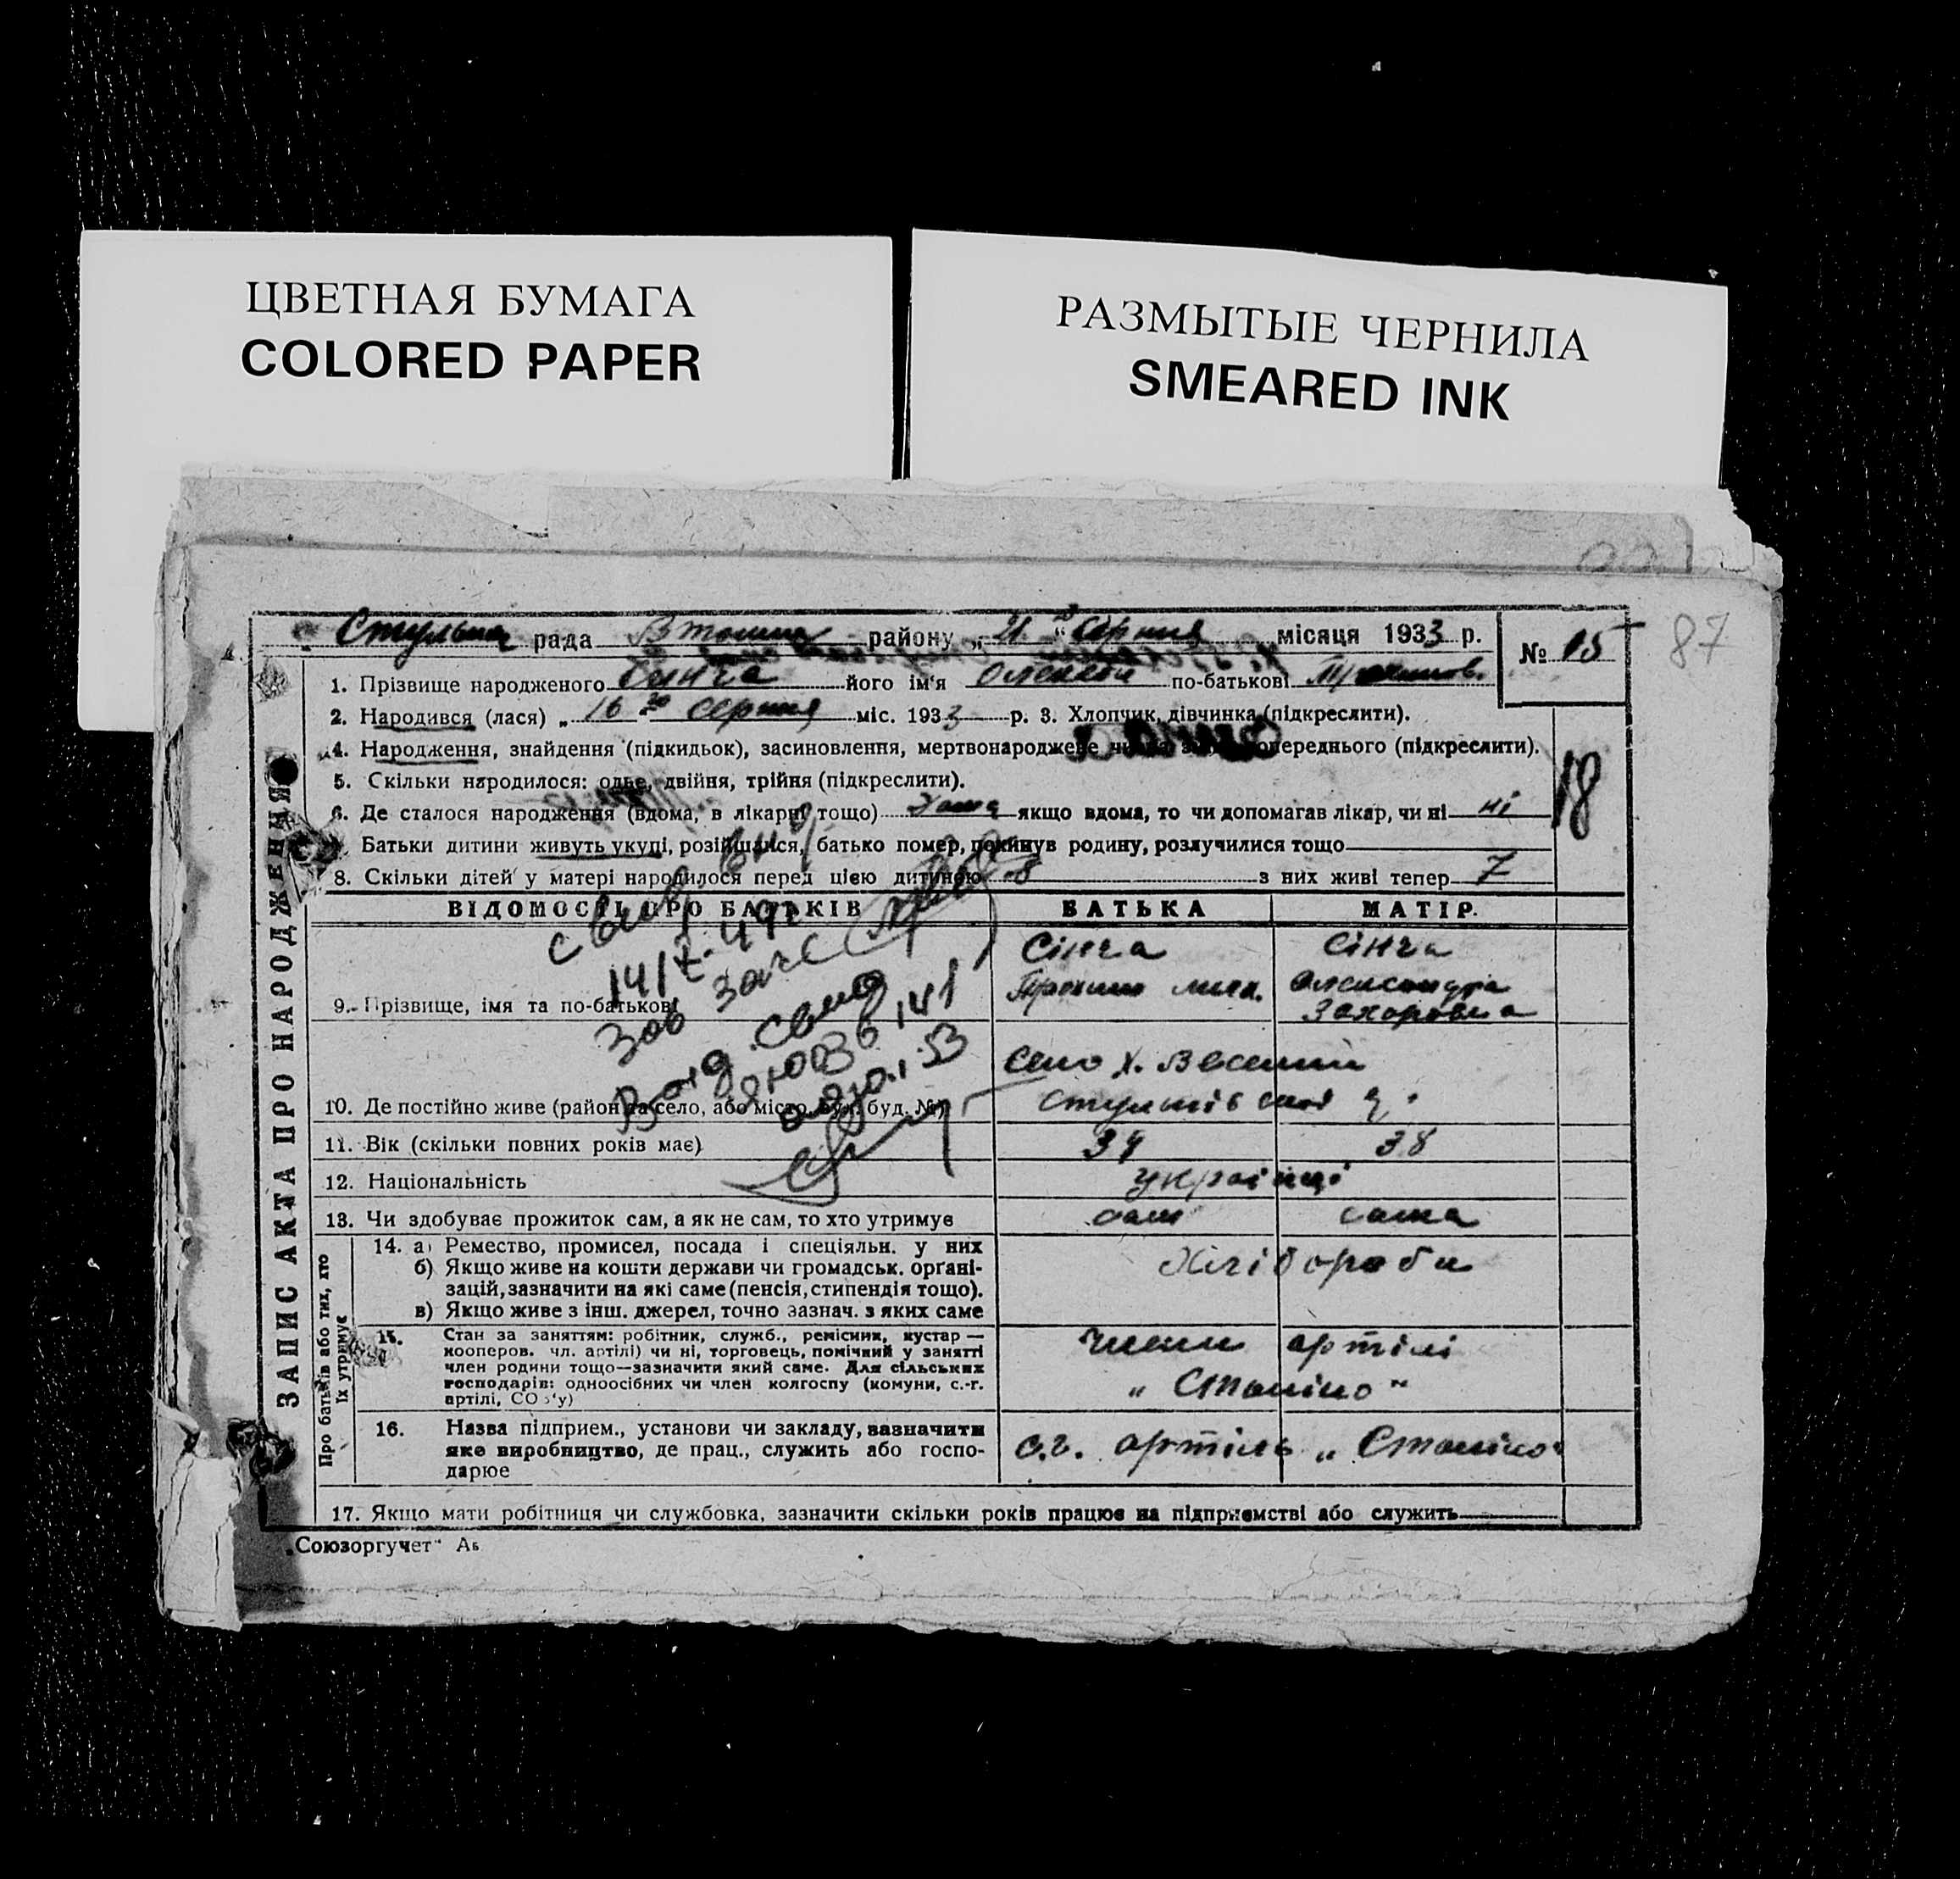 ЦВЕТНАЯ БУМАГА
COLORED PAPER
РАЗМЫТЫЕ ЧЕРНИЛА
SMEARED INK
87
рада району „21" Серпня місяця 1933 р. № 15
1. Прізвище народженого Сінча його ім'я Олексій по-батькові
2. Народився (лася) „16 го серпня міс. 1933 р. 3. Хлопчик, дівчинка (підкреслити).
4. Народження, знайдення (підкидьок), засиновлення, мертвонароджене опереднього (підкреслити).
5. Скільки народилося: одне, двійня, трійня (підкреслити).
18
6. Де сталося народження (вдома, в лікарні тощо) якщо вдома, то чи допомагав лікар, чи ні ні
Батьки дитини живуть укупі, розійшлися, батько помер, покинув родину, розлучилися тощо
8. Скільки дітей у матері народилося перед цією дитиною 8 з них живі тепер 7
ВІДОМОСТІ ПРО БАТЬКІВ БАТЬКА МАТІР.
Сінча Сінча
9. Прізвище, імя та по-батькові Олександра
Захоровна
Село Х. Веселий
10. Де постійно живе (район та село, або місто, вул. буд. №)
11. Вік (скільки повних років має) 38
12. Національність українці
13. Чи здобуває прожиток сам, а як не сам, то хто утримує сам сама
14. а) Ремество, промисел, посада і спеціяльн. у них
б) Якщо живе на кошти держави чи громадськ. органі-
зацій, зазначити на які саме (пенсія, стипендія тощо).
в) Якщо живе з інш. джерел, точно зазнач. з яких саме
Хлібороби
15. Стан за заняттям: робітник, служб., ремісник, кустар —
кооперов. чл. артілі) чи ні, торговець, помічний у занятті
член родини тощо—зазначити який саме. Для сільських
господарів: одноосібних чи член колгоспу (комуни, с.-г.
артілі, СОЗ'у)
члени артілі
„Сталіно"
16. Назва підприєм., установи чи закладу, зазначити
яке виробництво, де прац., служить або госпо-
дарює
с.г. артіль „Сталіно"
17. Якщо мати робітниця чи службовка, зазначити скільки років працює на підприємстві або служить
ЗАПИС АКТА ПРО НАРОДЖЕННЯ
Про батьків або тих, хто
їх утримує
„Союзоргучет" А5